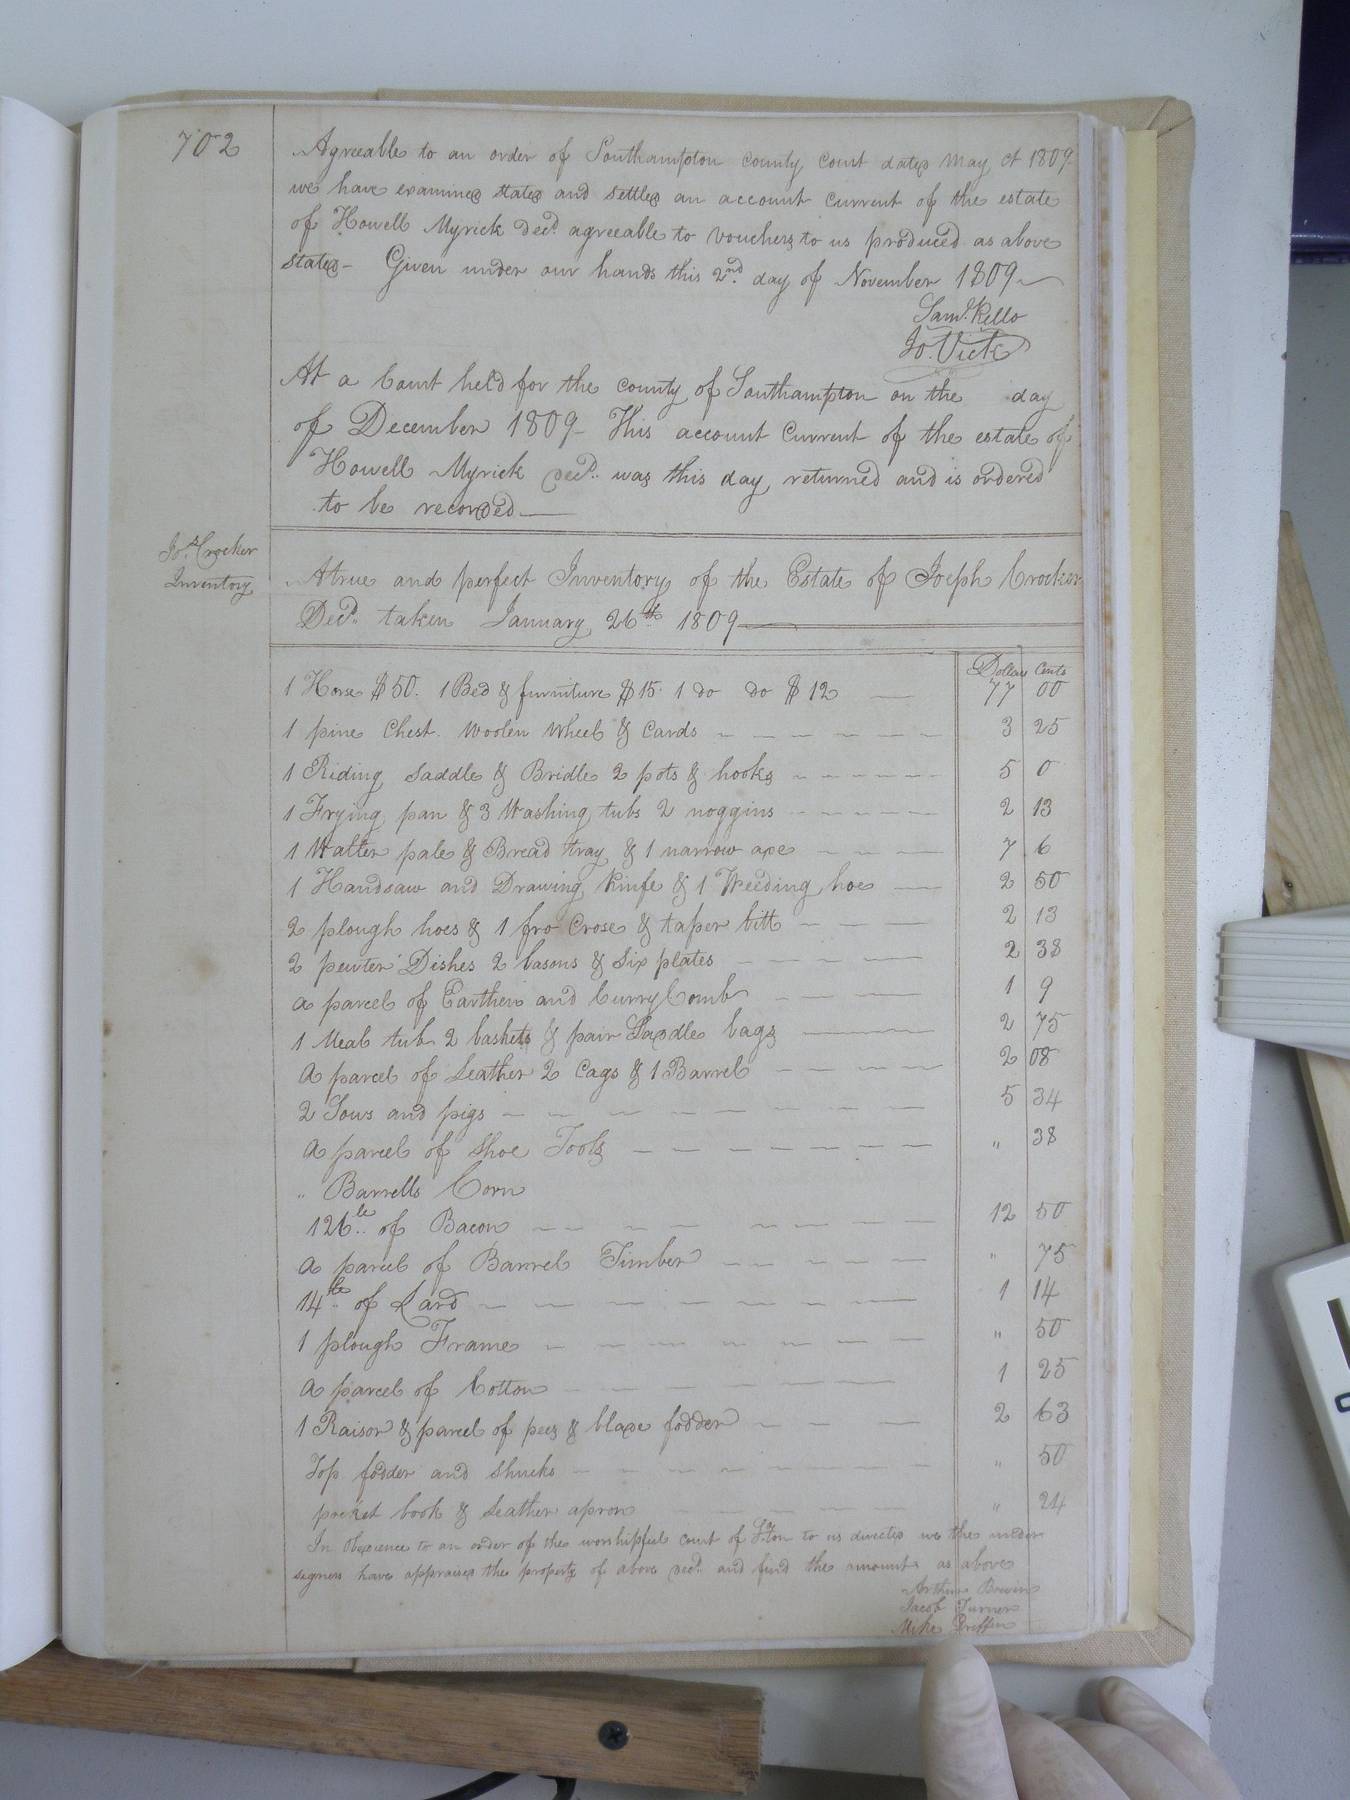 702
Agreeable to an order of Southampton county court dated May ct 1809
we have examined stated and settled an account current of the estate
of Howell Myrick Decd. agreeable to vouchers to us produced as above
stated- Given under our hands this 2nd. day of November 1809
Saml. Kello
Jo. Vick
At a Court held for the county of Southampton on the day
of December 1809- This account Current of the estate of
Howell Myrick decd. was this day returned and is ordered
to be recorded
Jos. Crocker
Inventory
A true and perfect Inventory of the Estate of Joseph Crocker
Decd. taken January 26th 1809
Dollars Cents
1 Horse $50. 1 Bed & furniture $15 1 do do $12 77 00
1 pine Chest. Woolen Wheel & Cards 3 25
1 Riding Saddle & Bridle 2 pots & hooks 5 0
1 Frying pan & 3 Washing tubs 2 noggins 2 13
1 Watter pale & Bread tray & 1 narrow axe 7 6
1 Handsaw and Drawing Kinfe & 1 Weeding hoe 2 50
2 plough hoes & 1 fro Crose & taper bitt 2 13
2 pewter Dishes 2 basons & Six plates 2 38
a parcel of Earthen and Curry Comb 1 9
1 Meal tub 2 baskets & pair Saddle bags 2 75
a parcel of Leather 2 Cags & 1 Barrel 2 08
2 Sows and pigs 5 34
a parcel of Shoe Tools " 38
" Barrells Corn
126 le of Bacon 12 50
a parcel of Barrel Timber " 75
14 le of Lard 1 14
1 plough Frame " 50
a parcel of Cotton 1 25
1 Raisor & parcel of pees & blade fodder 2 63
Top fodder and Shucks " 50
pocket book & Leather apron " 24
In Obedience to an order of the worshipful court of S.ton to us directed we the under
signers have appraised the property of above decd. and find the amount as above
Arthur Bowin
Jacob Turner
Mike Griffin